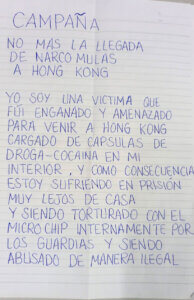 CAMPAÑA
NO MAS LA LLEGADA
DE NARCO MULAS
A HONG KONG
YO SOY UNA VICTIMA QUE
FUI ENGAÑADO Y AMENAZADO
PARA VENIR A HONG KONG
CARGADO DE CAPSULAS DE
DROGA-COCAINA EN MI
INTERIOR, Y COMO CONSECUENCIA
ESTOY SUFRIENDO EN PRISIÓN
MUY LEJOS DE CASA
Y SIENDO TORTURADO CON EL
MICRO CHIP INTERNAMENTE POR
LOS GUARDIAS Y SIENDO
ABUSADO DE MANERA ILEGAL